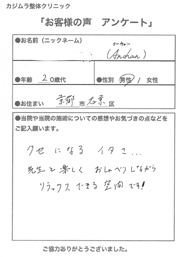 カジムラ整体クリニック
「お客様の声　アンケート」
●お名前（ニックネーム）
(Andnan)
●年齢　20歳代
●性別　男性 / 女性
●お住まい　京都市右京区
●当院や当院の施術についての感想やお気づきの点などをご記入願います。
クセになるイタさ…
先生と楽しくおしゃべりしながら
リラックスできる空間です!
ご協力ありがとうございました。